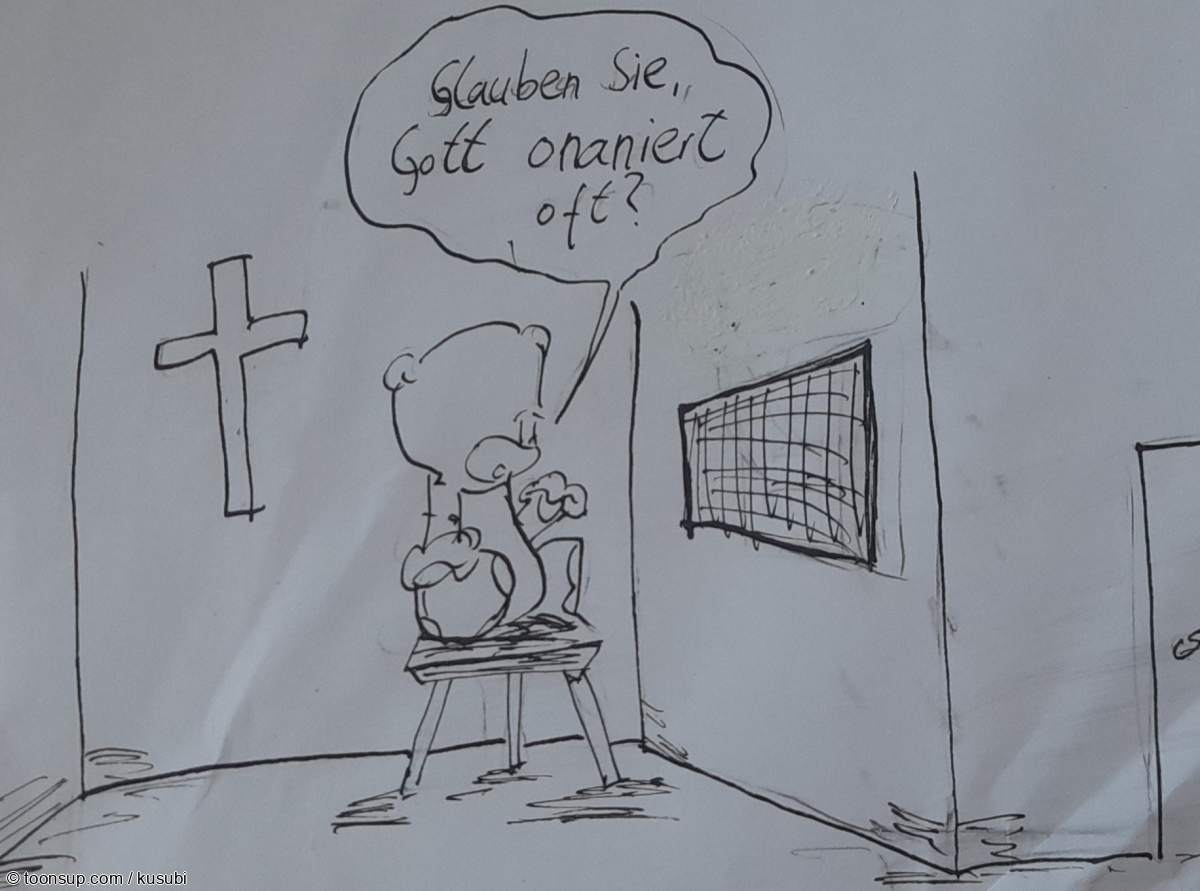 Glauben Sie,,
Gott onaniert
oft?
© toonsup.com / kusubi